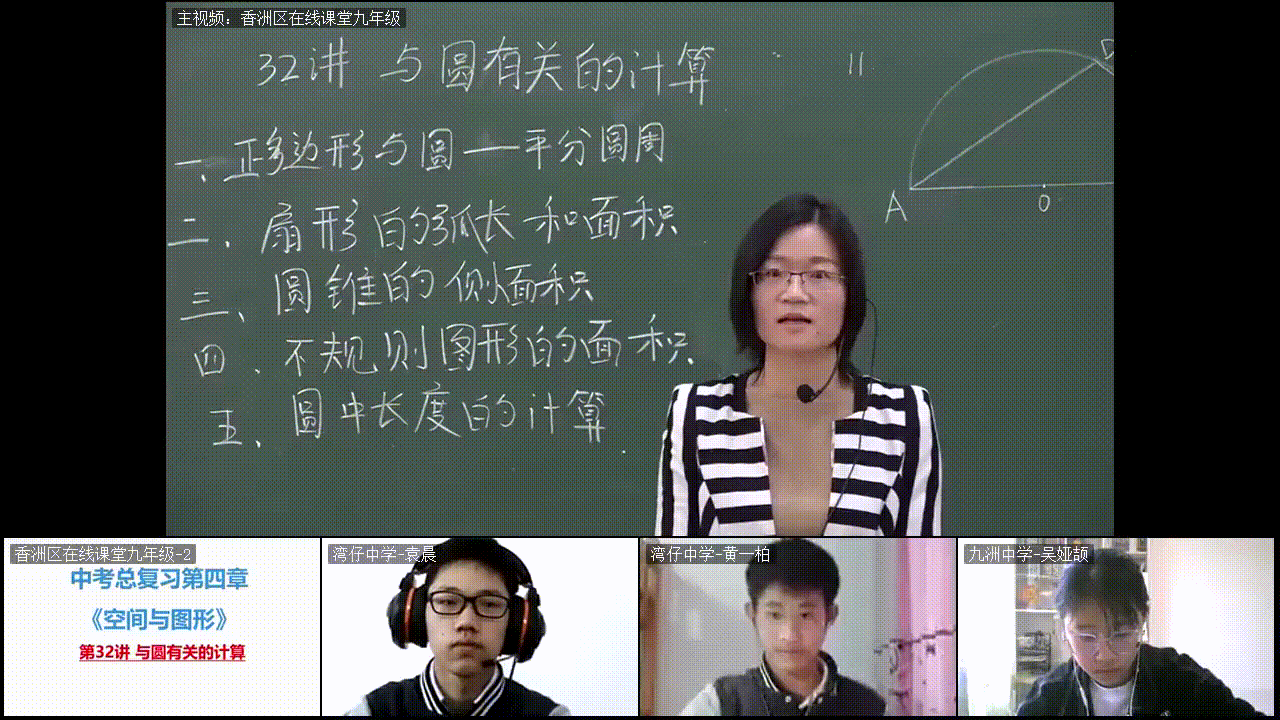 主视频：香洲区在线课堂九年级
32讲 与圆有关的计算
一、正多边形与圆——平分圆周
二、扇形的弧长和面积
三、圆锥的侧面积
四、不规则图形的面积
五、圆中长度的计算
D
A
O
香洲区在线课堂九年级-2
中考总复习第四章
《空间与图形》
第32讲 与圆有关的计算
湾仔中学-袁晨
湾仔中学-黄一柏
九洲中学-吴娅颉